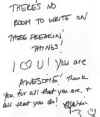 THERE'S NO
ROOM TO WRITE ON
THESE FREAKIN'
THINGS!
I ♡ U! You are
AWESOME! Thank
you for all that you are, &
all that you do!